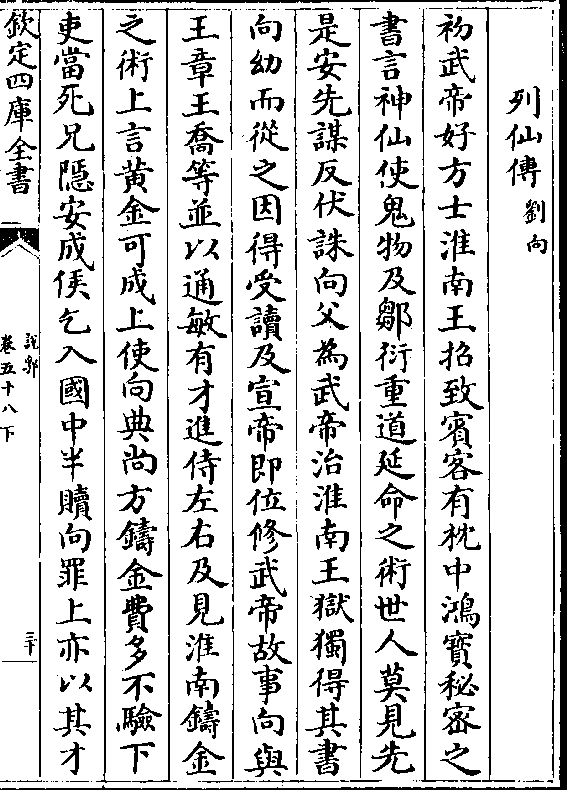 列仙傳劉向
初武帝好方士淮南王招致賓客有枕中鴻寳秘宻之
書言神仙使鬼物及鄒衍重道延命之術世人莫見先
是安先謀反伏誅向父為武帝治淮南王獄獨得其書
向幼而從之因得受讀及宣帝即位修武帝故事向與
王章王喬等並以通敏有才進侍左右及見淮南鑄金
之術上言黄金可成上使向典尚方鑄金費多不驗下
吏當死兄隠安成侯乞入國中半贖向罪上亦以其才
欽定四庫全書
說郛
卷五十八下
三十